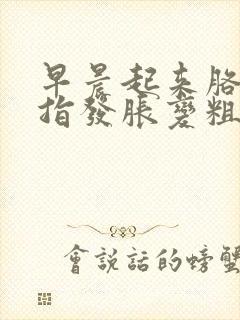 早晨起来胳
指發脹變粗
會說話的螃蟹